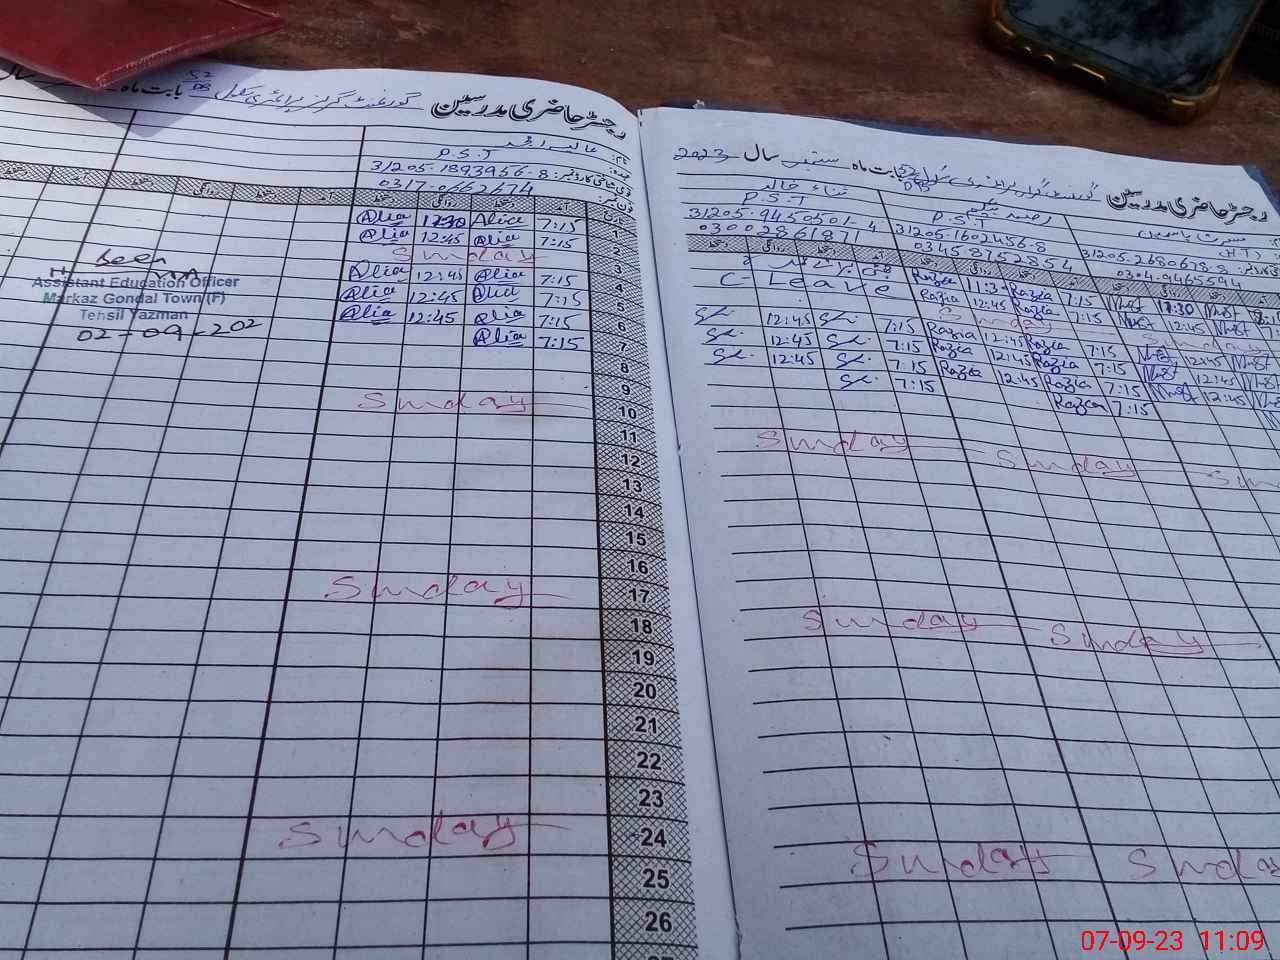 رجسٹر حاضری مدرسین گورنمنٹ گرلز پرائمری سکول 52/DB بابت ماہ
نام:
عہدہ: P.S.T
قومی شناختی کارڈ نمبر: 31205-1893956-8
فون نمبر: 0317-0662674
تاریخ آمد دستخط روانگی دستخط
1 7:15 Alia 12:30 Alia
2 7:15 Alia 12:45 Alia
3 Sunday
4 7:15 Alia 12:45 Alia
5 7:15 Alia 12:45 Alia
6 7:15 Alia 12:45 Alia
7 7:15 Alia
8
9
10 Sunday
11
12
13
14
15
16
17 Sunday
18
19
20
21
22
23
24 Sunday
25
26
Seen
Assistant Education Officer
Markaz Gondal Town (F)
Tehsil Yazman
02-09-202
رجسٹر حاضری مدرسین گورنمنٹ گرلز پرائمری سکول 52/DB بابت ماہ ستمبر سال 2023
مسرت یاسمین
(H.T)
31205-2680678-8
0304-9465594
رضیہ بیگم
P.S.T
31205-1602456-8
03458752854
ثناء خالد
P.S.T
31205-9450501-4
03002861871
آمد دستخط روانگی دستخط
11:30
7:15 Razia 11:30 Razia
C-Leave
12:45
7:15 Razia 12:45 Razia
Sunday
Sunday
12:45
7:15 Razia 12:45 Razia
7:15 12:45
12:45
7:15 Razia 12:45 Razia
7:15 12:45
12:45
7:15 Razia 12:45 Razia
7:15 12:45
7:15 Razia
7:15
Sunday Sunday Sun
Sunday Sunday
Sunday Sunda
07-09-23 11:09